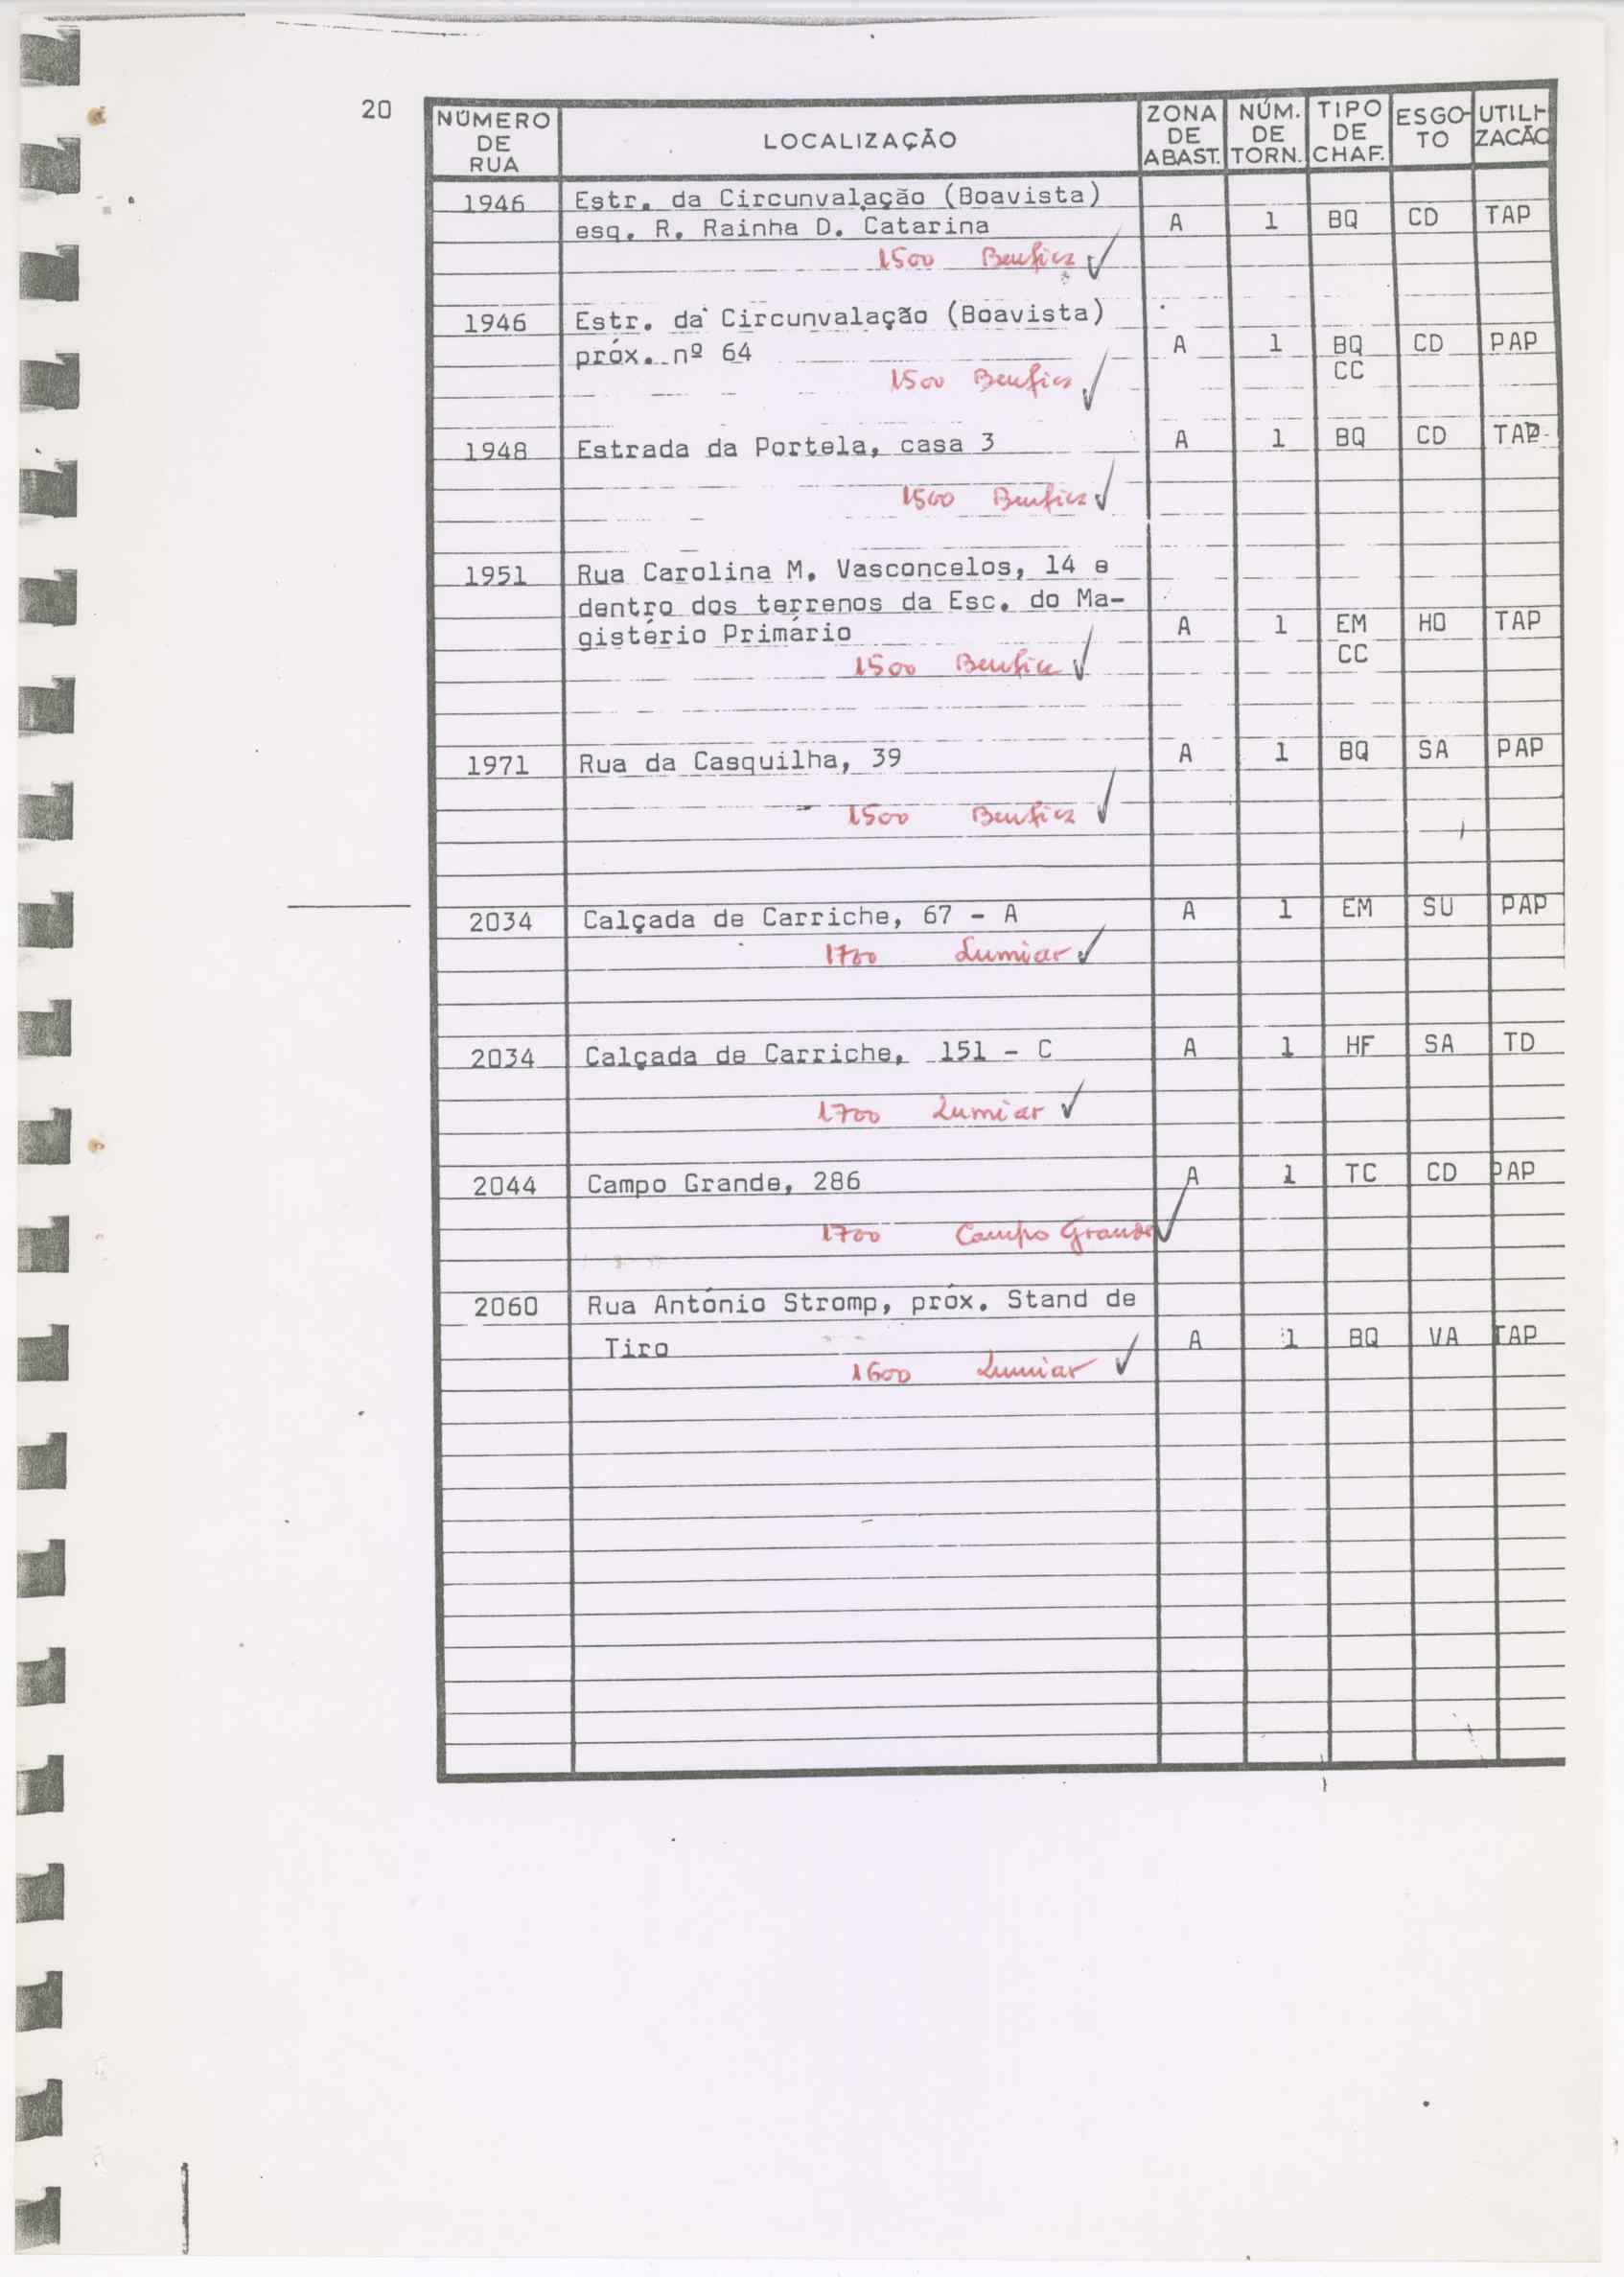 20
NÚMERO DE RUA LOCALIZAÇÃO ZONA DE ABAST. NÚM. DE TORN. TIPO DE CHAF. ESGOTO UTILIZACÃO
1946 Estr. da Circunvalação (Boavista)
esq. R. Rainha D. Catarina A 1 BQ CD TAP
1500 Benfica ✓
1946 Estr. da Circunvalação (Boavista)
próx. nº 64 A 1 BQ CD PAP
CC
1500 Benfica ✓
1948 Estrada da Portela, casa 3 A 1 BQ CD TAP
1500 Benfica ✓
1951 Rua Carolina M. Vasconcelos, 14 e
dentro dos terrenos da Esc. do Ma-
gistério Primário A 1 EM HO TAP
CC
1500 Benfica ✓
1971 Rua da Casquilha, 39 A 1 BQ SA PAP
1500 Benfica ✓
2034 Calçada de Carriche, 67 - A A 1 EM SU PAP
1700 Lumiar ✓
2034 Calçada de Carriche, 151 - C A 1 HF SA TD
1700 Lumiar ✓
2044 Campo Grande, 286 A 1 TC CD PAP
1700 Campo Grande ✓
2060 Rua António Stromp, próx. Stand de
Tiro A 1 BQ VA TAP
1600 Lumiar ✓